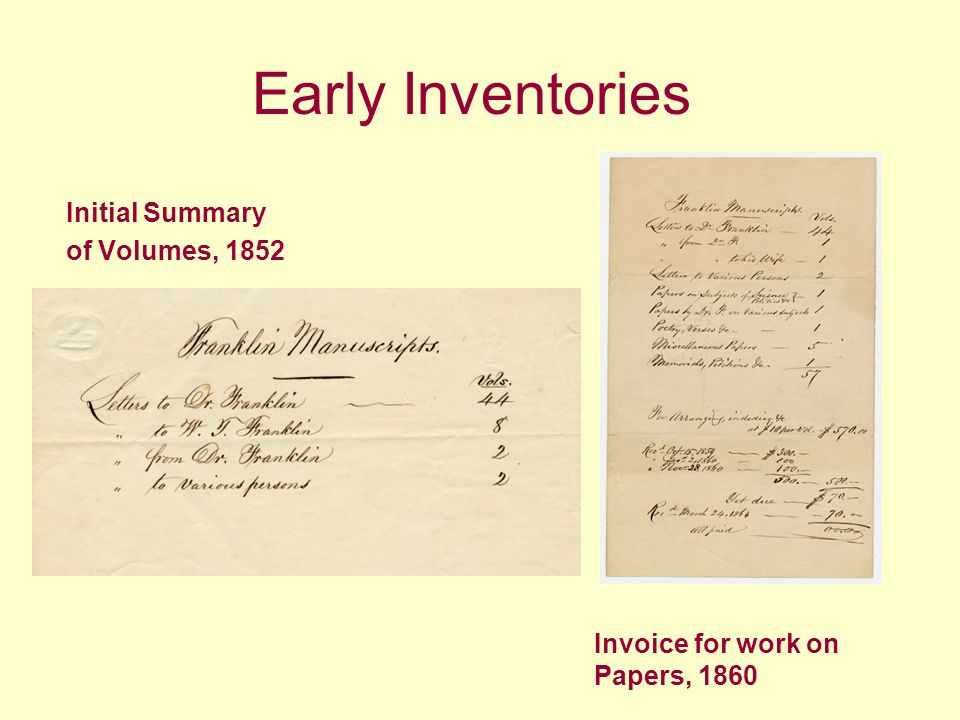 Early Inventories
Initial Summary
of Volumes, 1852
Franklin Manuscripts.
Vols.
Letters to Dr. Franklin — 44
„ to W. T. Franklin 8
„ from Dr. Franklin 2
„ to various persons 2
Franklin Manuscripts.
Vols.
Letters to Dr. Franklin — 44
„ from Dr. F. 1
„ „ to his Wife — 1
Letters to Various Persons 2
Papers on Subjects of Science & Politics &c — 1
Papers by Dr. F. on Various Subjects 1
Poetry, Verses &c — — 1
Miscellaneous Papers — 5
Memorials, Petitions &c. 1
57
For Arranging, indexing &c
at $10 per vol. — $570.00
Recd. Oct. 15, 1859 — $300.—
„ 2, 1860 — 100
„ Nov. 28, 1860 — 100.—
500.— 500.—
Yet due — $70.—
Recd. March 24, 1864 — 70.—
All paid
Invoice for work on
Papers, 1860